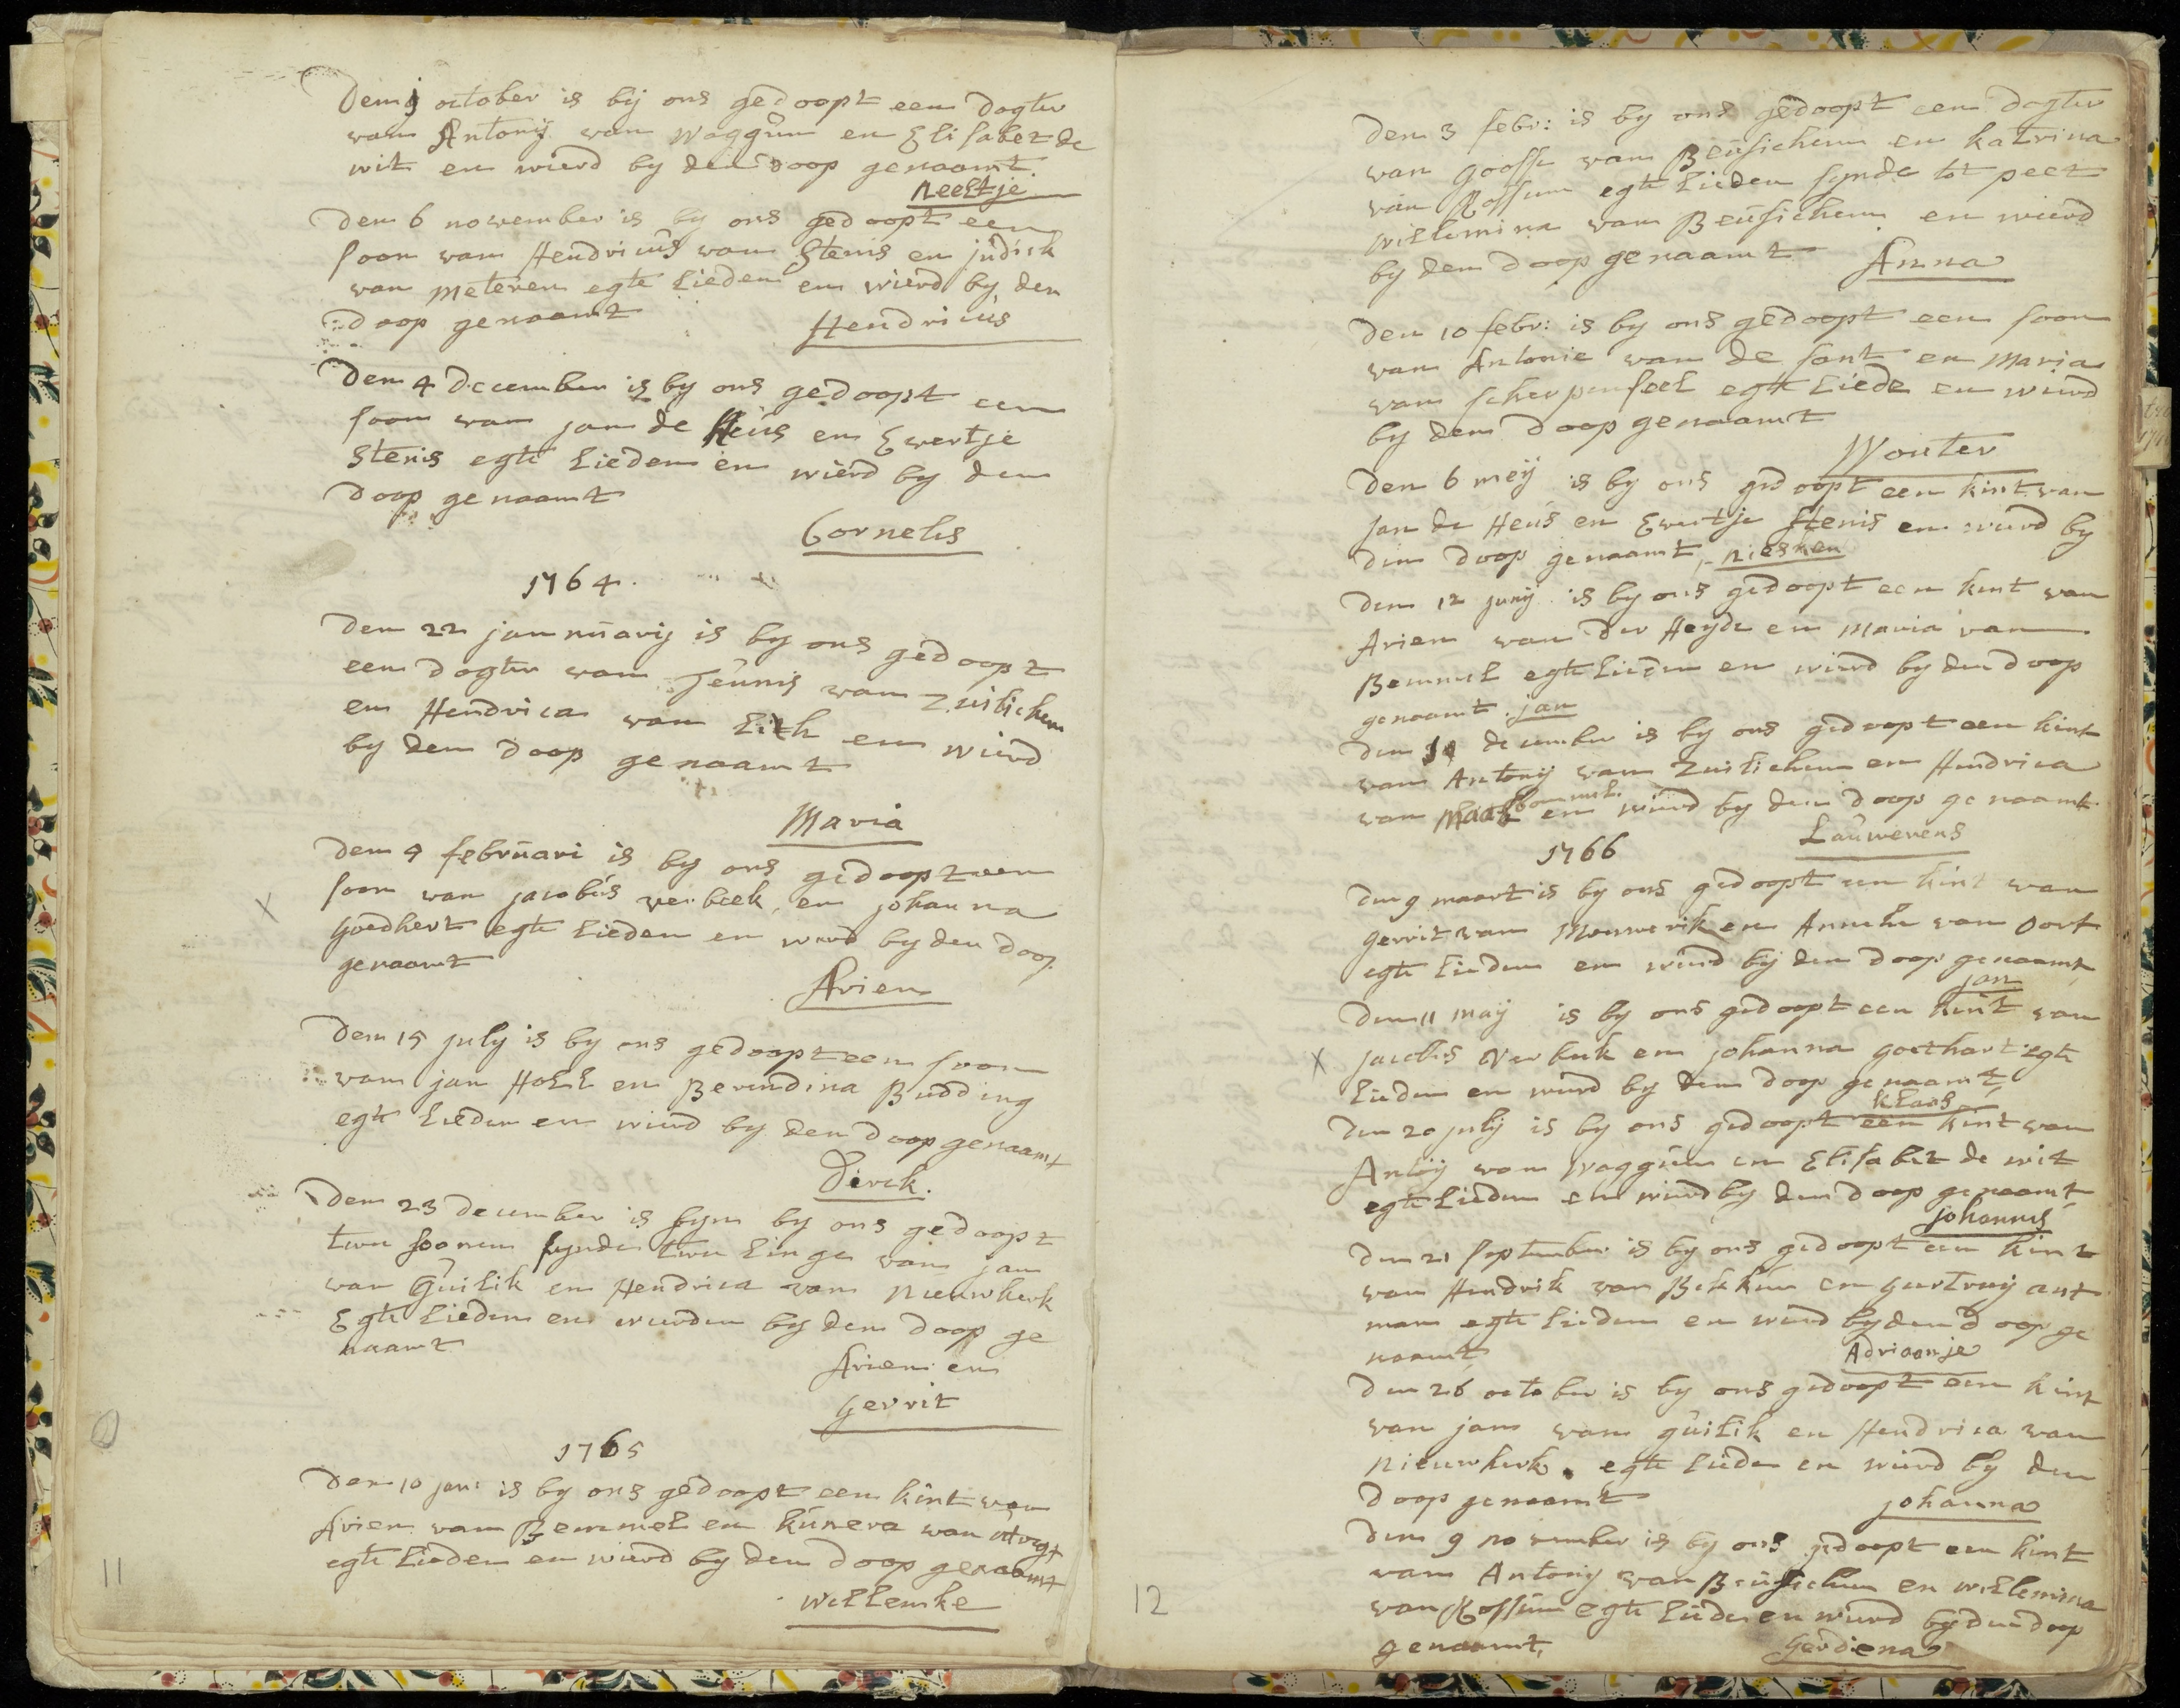 Den 9 october is bij ons gedoopt een dogter
van Antonij van Waggum en Elisabet de
wit en wierd by den doop genaamt
Neeltje
Den 6 november is by ons gedoopt een
soon van Hendricus van Stenis en judick
van meteren egte Lieden en wierd by den
doop genaamt Hendricus
Den 4 December is by ons gedoopt een
soon van jan de Heus en Evertje
Stenis egte Lieden en wierd by den
doop genaamt
Cornelis
1764.
Den 22 jannuarij is by ons gedoopt
een dogter van Teunis van Zuilichem
en Hendrica van Lith en wierd
by den doop genaamt
Maria
Den 9 februari is by ons gedoopt een
soon van jacobus verbeek en johanna
X
Goedhert egte Lieden en wierd by den doop
genaamt
Arien
Den 15 july is by ons gedoopt een soon
van jan Holl en Berendina Budding
egte Lieden en wierd by den doop genaamt
Dirck.
Den 23 December is syn by ons gedoopt
twee soonen synde twee Linge van jan
van Guilik en Hendrica van nieuwkerk
Egte Lieden en wierden by den doop ge
naamt
Arien en
Gerrit
1765
Den 10 jan: is by ons gedoopt een kint van
Arien van Bemmel en kunera van utregt
egte Lieden en wierd by den doop genaamt
Willemke
11
Den 3 febr: is by ons gedoopt een dogter
van Goosse van Beusichem en katrina
van Rossum egte Lieden synde tot peet
willemina van Beusichem en wierd
by den doop genaamt Anna
Den 10 febr: is by ons gedoopt een soon
van Antonie van de sant en Maria
van scherpenseel egte Liede en wierd
by den doop genaamt
Wouter
Den 6 meij is by ons gedoopt een kint van
Jan de Heus en Evertje Stenis en wierd by
den doop genaamt, niesken
Den 12 junij is by ons gedoopt een kint van
Arien van der Heyde en Maria van
Bemmel egte Lieden en wierd by den doop
genaamt jan
Den december is by ons gedoopt een kint
van Antonij van Zuilichem en Hendrica
van Maasbommel en wierd by den doop genaamt
Lauwerens
1766
Den 9 maart is by ons gedoopt een kint van
Gerrit van Mouwerik en Anneke van Oort
egte Lieden en wierd bij den doop genaamt
jan
Den 11 maij is by ons gedoopt een kint van
X jacobis Verbeek en johanna goethart egte
Lieden en wierd by den doop genaamt,
klaas
Den 20 julij is by ons gedoopt een kint van
Antoij van Waggum en Elisabet de wit
egte Lieden en wierd by den doop genaamt
johannes
Den 21 september is by ons gedoopt een kint
van Hendrik van Bekkum en geertruij ant
man egte Lieden en wierd by den doop ge
naamt Adriaanje
Den 26 october is by ons gedoopt een kint
van jan van guilik en Hendrica van
nieuwkerk egte Lieden en wierd by den
doop genaamt johanna
Den 9 november is by ons gedoopt een kint
van Antonij van Beusichem en willemina
van Rossum egte Lieden en wierd by den doop
genaamt, Gerdiena
12